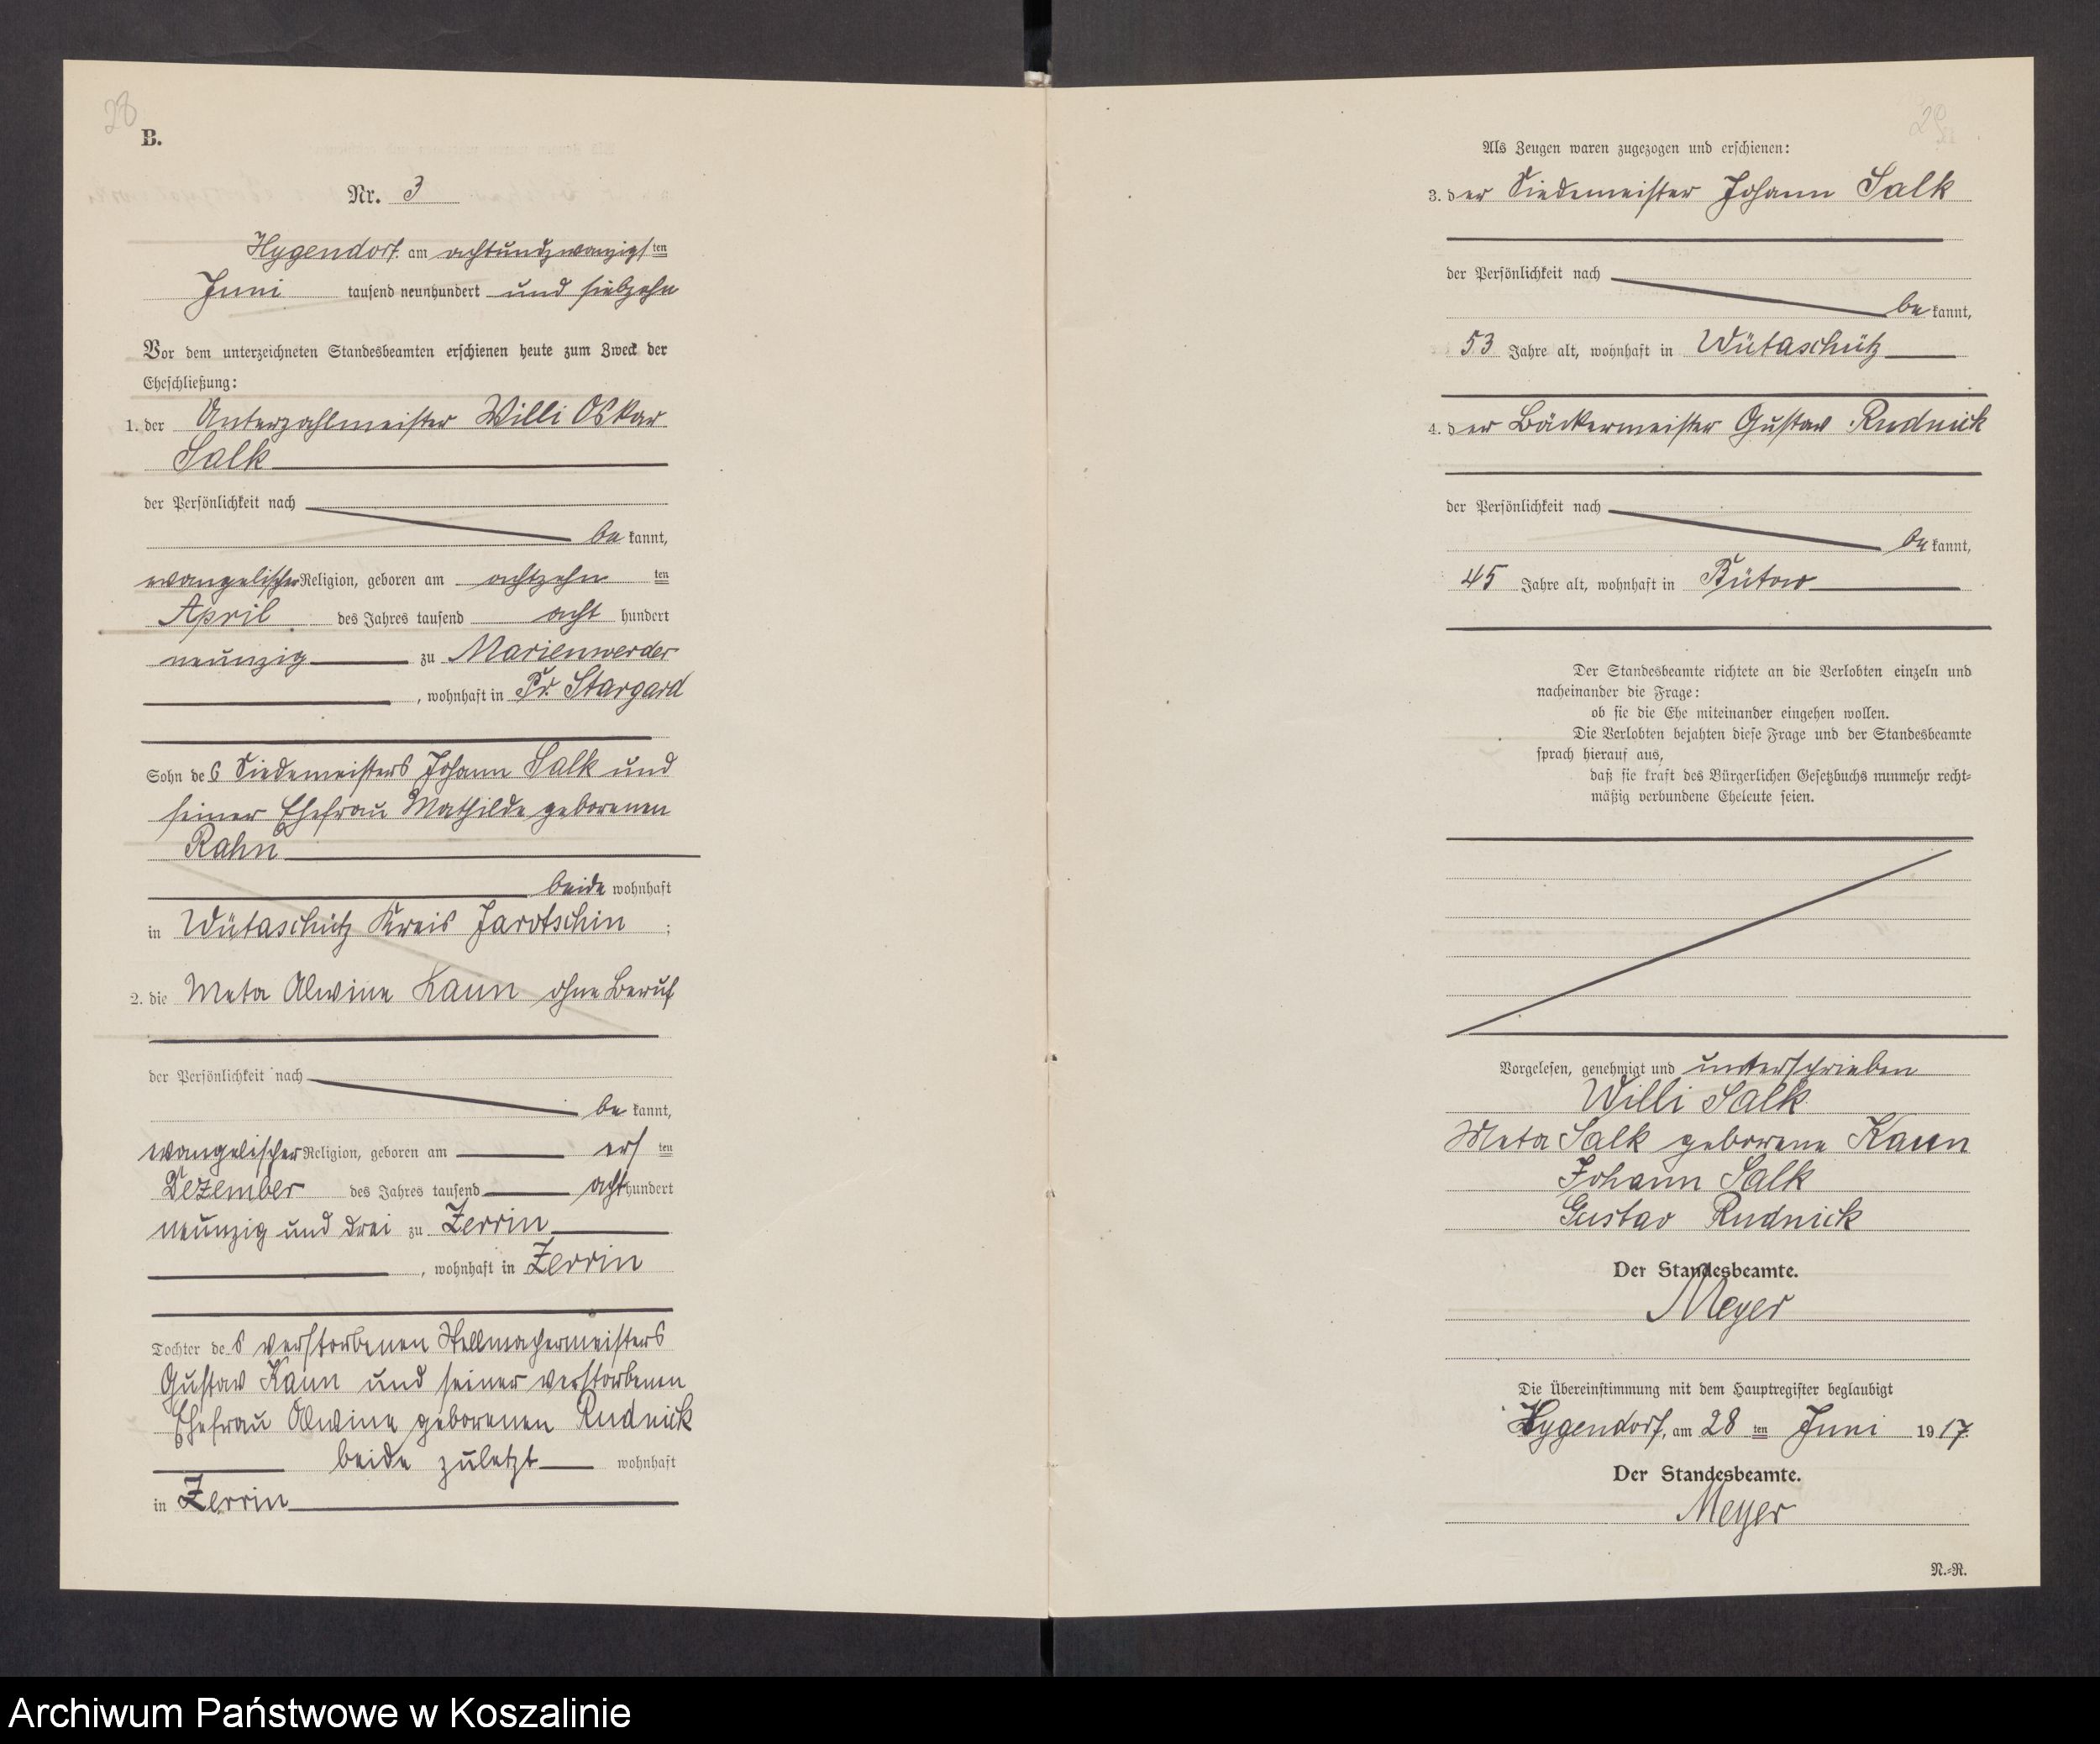 28
B.
Nr. 3
Hygendorf am achtundzwanzigsten
Juni tausend neunhundert und siebzehn
Vor dem unterzeichneten Standesbeamten erschienen heute zum Zweck der
Eheschließung:
1. der Unterzahlmeister Willi Oskar
Salk
der Persönlichkeit nach
be kannt,
evangelischer Religion, geboren am achtzehn ten
April des Jahres tausend acht hundert
neunzig zu Marienwerder
, wohnhaft in Pr. Stargard
Sohn des Siedemeisters Johann Salk und
seiner Ehefrau Mathilde geborenen
Rahn
beide wohnhaft
in Wütaschütz Kreis Jarotschin ;
2. die Meta Alwine Kaun ohne Beruf
der Persönlichkeit nach
be kannt,
evangelischer Religion, geboren am ers ten
Dezember des Jahres tausend acht hundert
neunzig und drei zu Zerrin
, wohnhaft in Zerrin
Tochter des verstorbenen Stellmachermeisters
Gustav Kaun und seiner verstorbenen
Ehefrau Alwine geborenen Rudnick
beide zuletzt wohnhaft
in Zerrin
29
Als Zeugen waren zugezogen und erschienen:
3. der Siedemeister Johann Salk
der Persönlichkeit nach
be kannt,
53 Jahre alt, wohnhaft in Wütaschütz
4. der Bäckermeister Gustav Rudnick
der Persönlichkeit nach
be kannt,
45 Jahre alt, wohnhaft in Bütow
Der Standesbeamte richtete an die Verlobten einzeln und
nacheinander die Frage:
ob sie die Ehe miteinander eingehen wollen.
Die Verlobten bejahten diese Frage und der Standesbeamte
sprach hierauf aus,
daß sie kraft des Bürgerlichen Gesetzbuchs nunmehr recht-
mäßig verbundene Eheleute seien.
Vorgelesen, genehmigt und unterschrieben
Willi Salk
Meta Salk geborene Kaun
Johann Salk
Gustav Rudnick
Der Standesbeamte.
Meyer
Die Übereinstimmung mit dem Hauptregister beglaubigt
Hygendorf, am 28 ten Juni 1917.
Der Standesbeamte.
Meyer
N.-R.
Archiwum Państwowe w Koszalinie